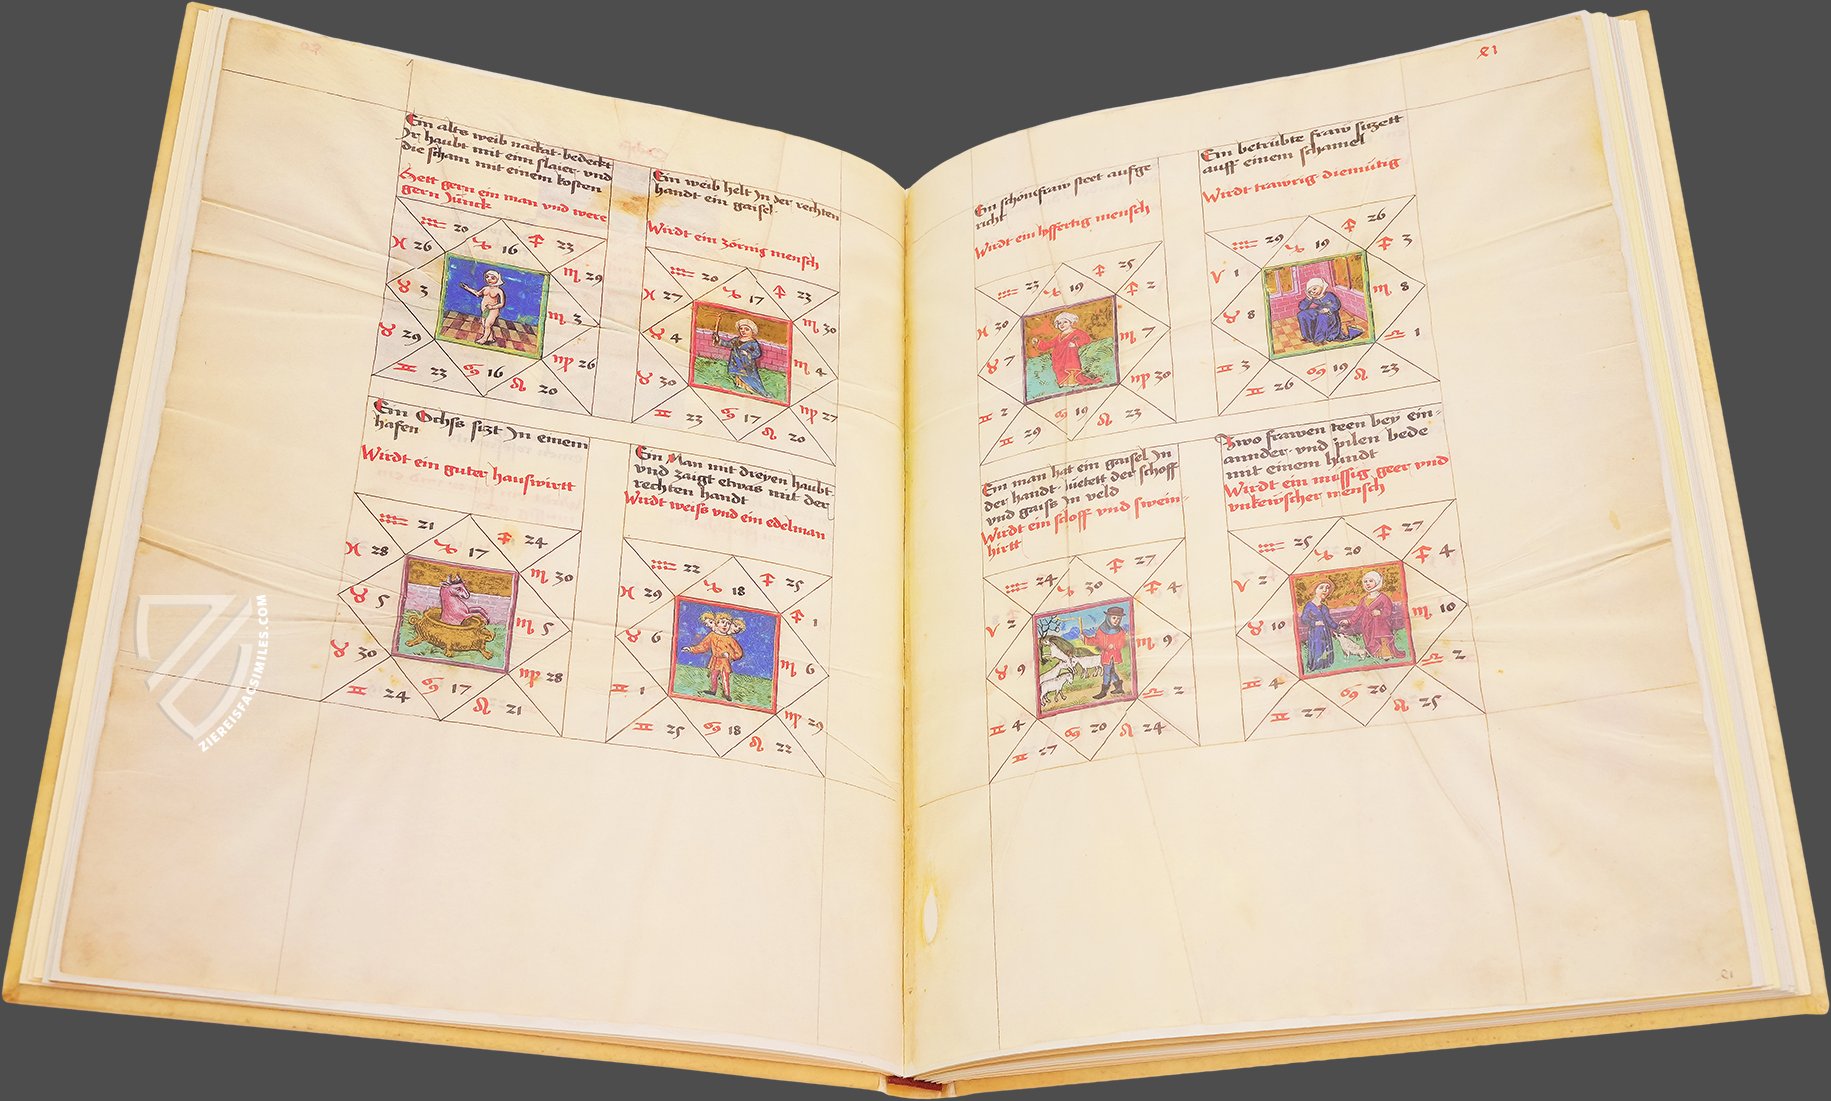 Ein alts weib nackat bedeckt
Ir haubt mit eim slaier und
die scham mit einem kosten
Hett gern ein man und were
gern Junck
♒ 20 ♑ 16 ♐ 23
♓ 26 ♏ 29
♉ 3 ♏ 3
♉ 29 ♍ 26
♊ 23 ♋ 16 ♌ 20
Ein weib helt In der rechten
handt ein gaisel
Wirdt ein zörnig mensch
♒ 20 ♑ 17 ♐ 23
♓ 27 ♏ 30
♉ 4 ♏ 4
♉ 30 ♍ 27
♊ 23 ♋ 17 ♌ 20
Ein Ochss sizt In einem
hafen
Wirdt ein guter hauswirtt
♒ 21 ♑ 17 ♐ 24
♓ 28 ♏ 30
♉ 5 ♏ 5
♉ 30 ♍ 28
♊ 24 ♋ 17 ♌ 21
Ein Man mit dreyen haubt
und zaigt etwas mit der
rechten handt
Wirdt weiss und ein edelman
♒ 22 ♑ 18 ♐ 25
♓ 29 ♐ 1
♉ 6 ♏ 6
♊ 1 ♍ 29
♊ 25 ♋ 18 ♌ 22
21
Ein schöne fraw steet aufge
richt
Wirdt ein hoffertig mensch
♒ 23 ♑ 19 ♐ 25
♓ 30 ♐ 2
♉ 7 ♏ 7
♊ 2 ♍ 30
♊ 29 ♋ 19 ♌ 23
Ein betrübte fraw sitzett
auff einem schamel
Wirdt trawrig diemütig
♒ 29 ♑ 19 ♐ 26
♈ 1 ♐ 3
♉ 8 ♏ 8
♊ 3 ♎ 1
♊ 26 ♋ 19 ♌ 23
Ein man hat ein gaisel In
der handt hüetett der schoff
und gaiss In veld
Wirdt ein schoff und swein-
hirtt
♒ 24 ♑ 30 ♐ 27
♈ 2 ♐ 4
♉ 9 ♏ 9
♊ 4 ♎ 2
♊ 27 ♋ 20 ♌ 24
Zwo frawen steen bey ein-
annder und spilen bede
mit einem hundt
Wirdt ein müssig geer und
unkewscher mensch
♒ 25 ♑ 20 ♐ 27
♈ 2 ♐ 4
♉ 10 ♏ 10
♊ 4 ♎ 2
♊ 27 ♋ 20 ♌ 25
21
ZIEREISFACSIMILES.COM